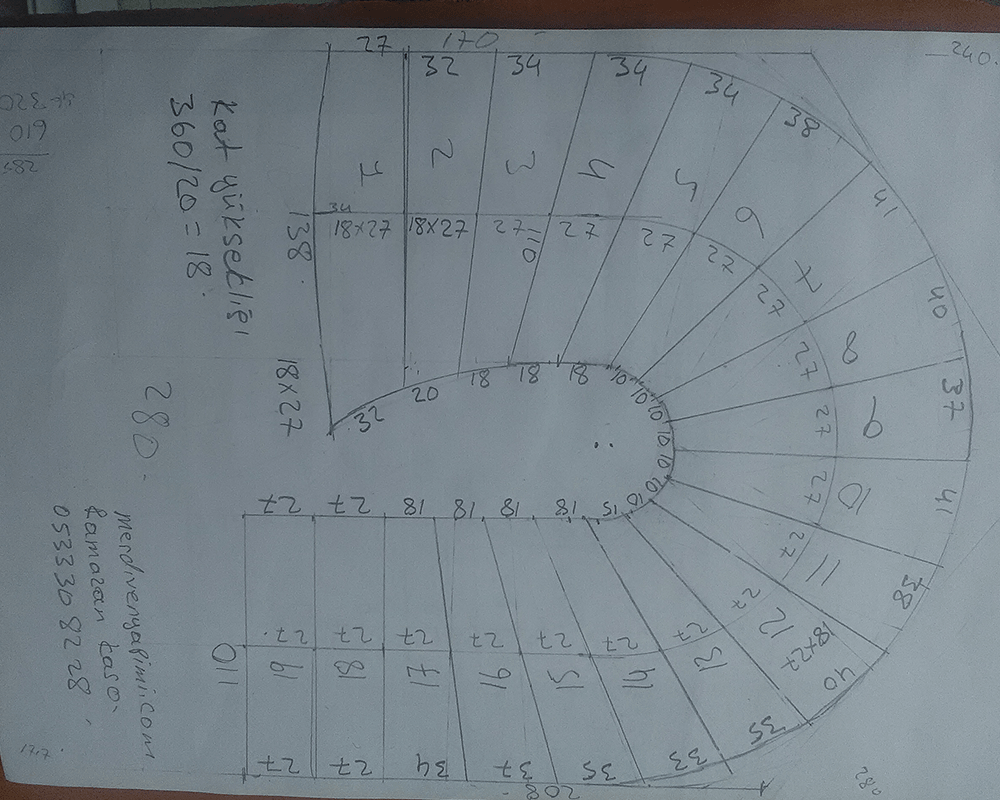 240.
320
610
285
kat yüksekliği
360/20=18.
27 170
32 34 34 34 38 41 40 37 41 38 40 35 33 35 37 34 27 27
1 2 3 4 5 6 7 8 9 10 11 12 13 14 15 16 17 18 19
34
138.
18x27 18x27 27 27 27 27 27 27 27 27 27 27 27 27 27 27 27 27 27.
110
18x27
18x27
32 20 18 18 18 10 10 10 10 10 10 10 15 18 18 18 18 27 27
280.
110
208
merdivenyapimi.com
Ramazan Kaso.
0533 30 82 28
17,7.
280